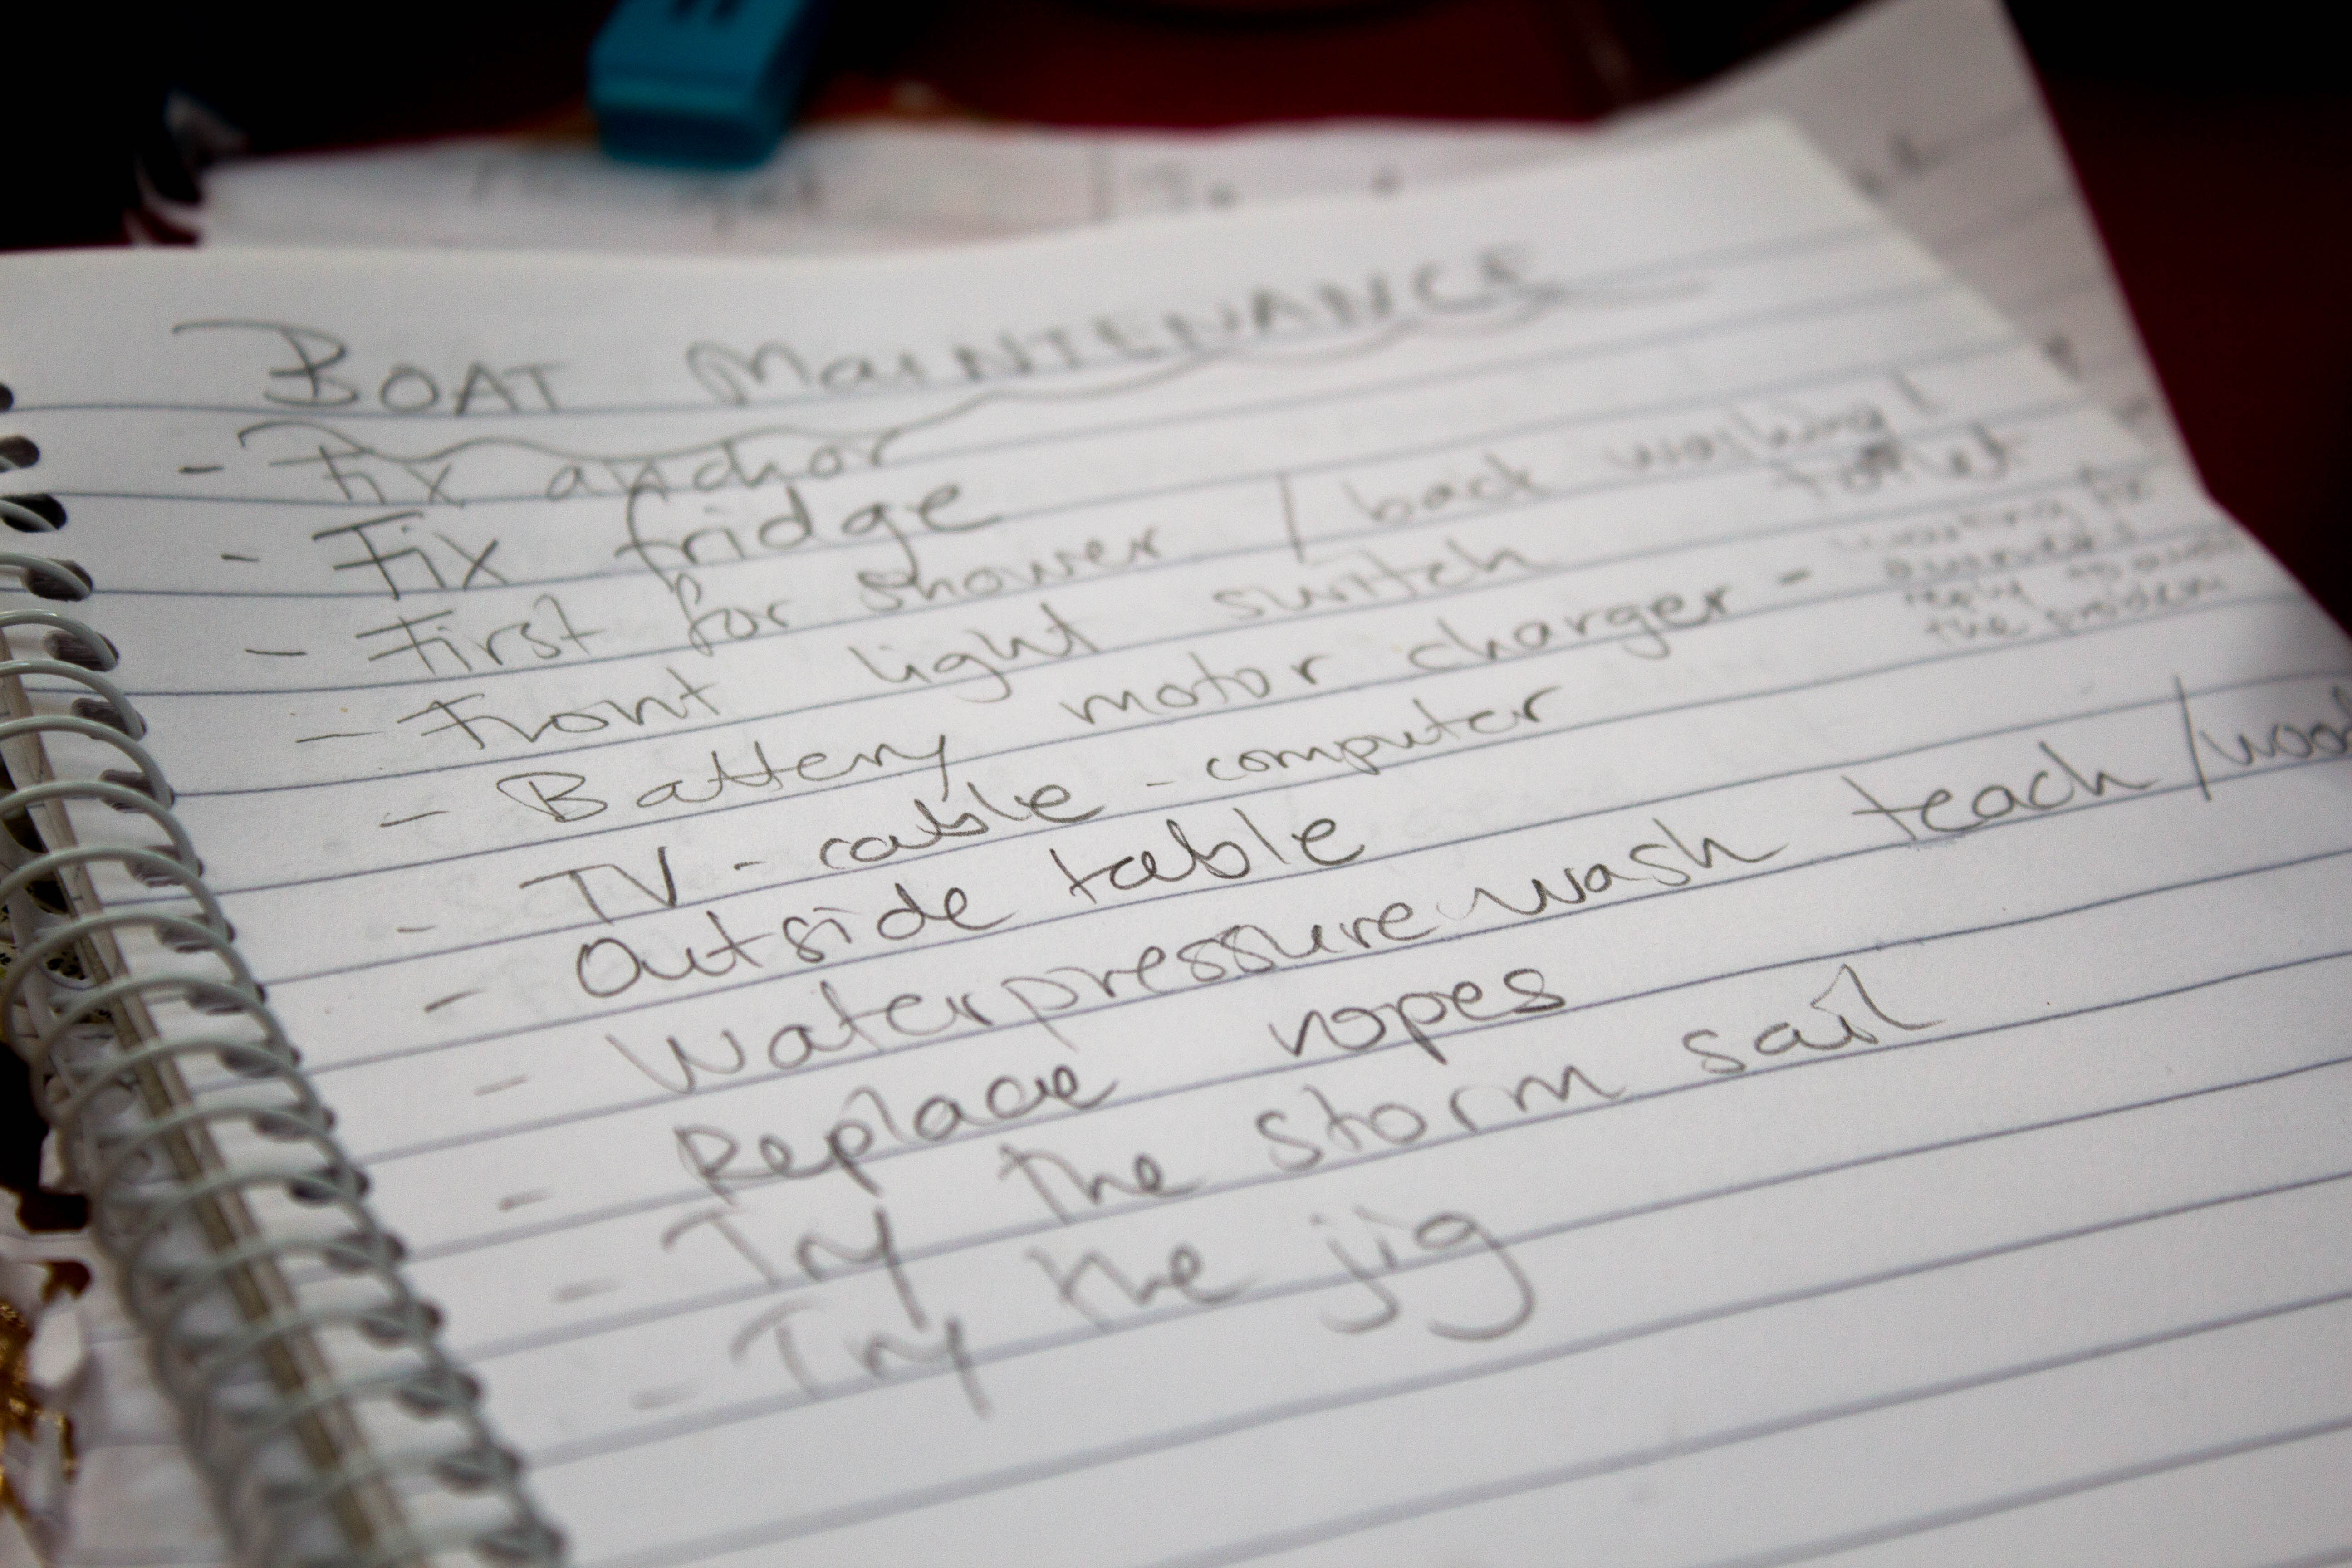 BOAT MAINTENANCE
- Fix anchor
- Fix fridge
- First for shower / back working!
toilet
- Front light switch
- Battery motor charger - waiting for
reply about
the problem
- TV - cable - computer
- Outside table
- Waterpressure wash teach /wood
- Replace ropes
- Try the storm sail
- Try the jig